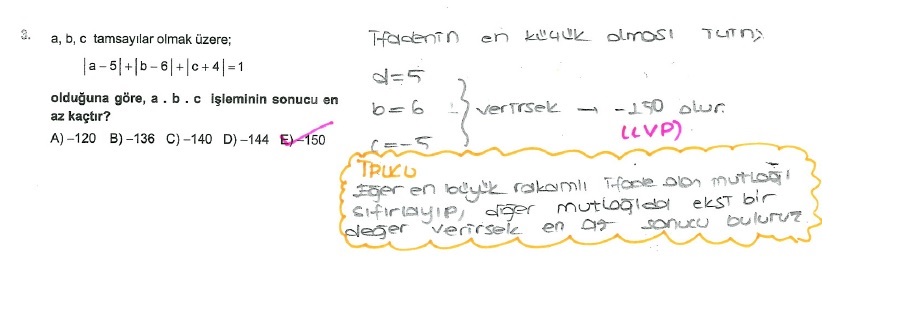 3. a, b, c tamsayılar olmak üzere;
|a – 5| + |b – 6| + |c + 4| = 1
olduğuna göre, a . b . c işleminin sonucu en
az kaçtır?
A) –120 B) –136 C) –140 D) –144 E) –150
İfadenin en küçük olması
a=5
b=6
c=-5
verirsek → -150 olur.
(CVP)
TRUCU
Eğer en büyük rakamlı ifade olan mutlağı
sıfırlayıp, diğer mutlağıdabi eksi bir
değer verirsek en az sonucu buluruz.